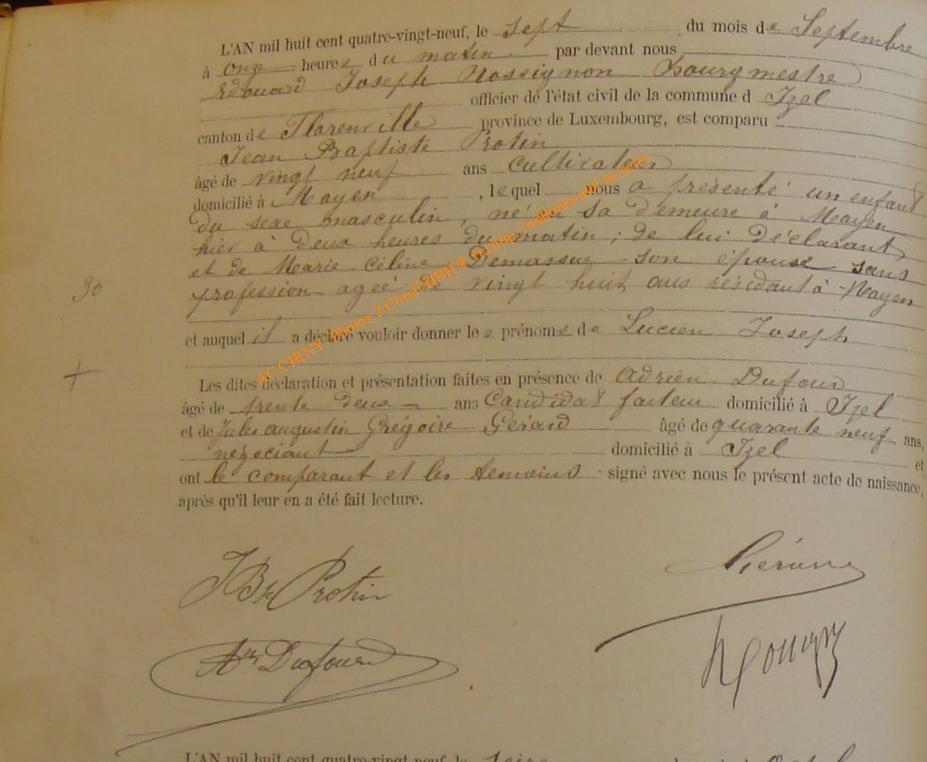 L'AN mil huit cent quatre-vingt-neuf, le sept du mois de Septembre
à onze heures du matin par devant nous
Edouard Joseph Rossignon Bourgmestre
officier de l'état civil de la commune d Izel
canton de Florenville province de Luxembourg, est comparu
Jean Baptiste Protin
âgé de vingt neuf ans Cultivateur
domicilié à Moyen , lequel nous a présenté un enfant
du sexe masculin, né à sa demeure à Moyen
hier à deux heures du matin ; de lui déclarant
et de Marie Céline son épouse sans
profession agée de vingt huit ans résidant à Moyen
30
et auquel il a déclaré vouloir donner les prénoms de Lucien Joseph
+
Les dites déclaration et présentation faites en présence de Adrien Dufour
âgé de trente deux ans Candidat facteur domicilié à Izel
et de Jules augustin Grégoire Gérard âgé de quarante neuf ans,
négociant domicilié à Izel et
ont le comparant et les témoins signé avec nous le présent acte de naissance,
après qu'il leur en a été fait lecture.
JBte Protin
Gérard
Dufour
L'AN mil huit cent quatre-vingt-neuf, le seize